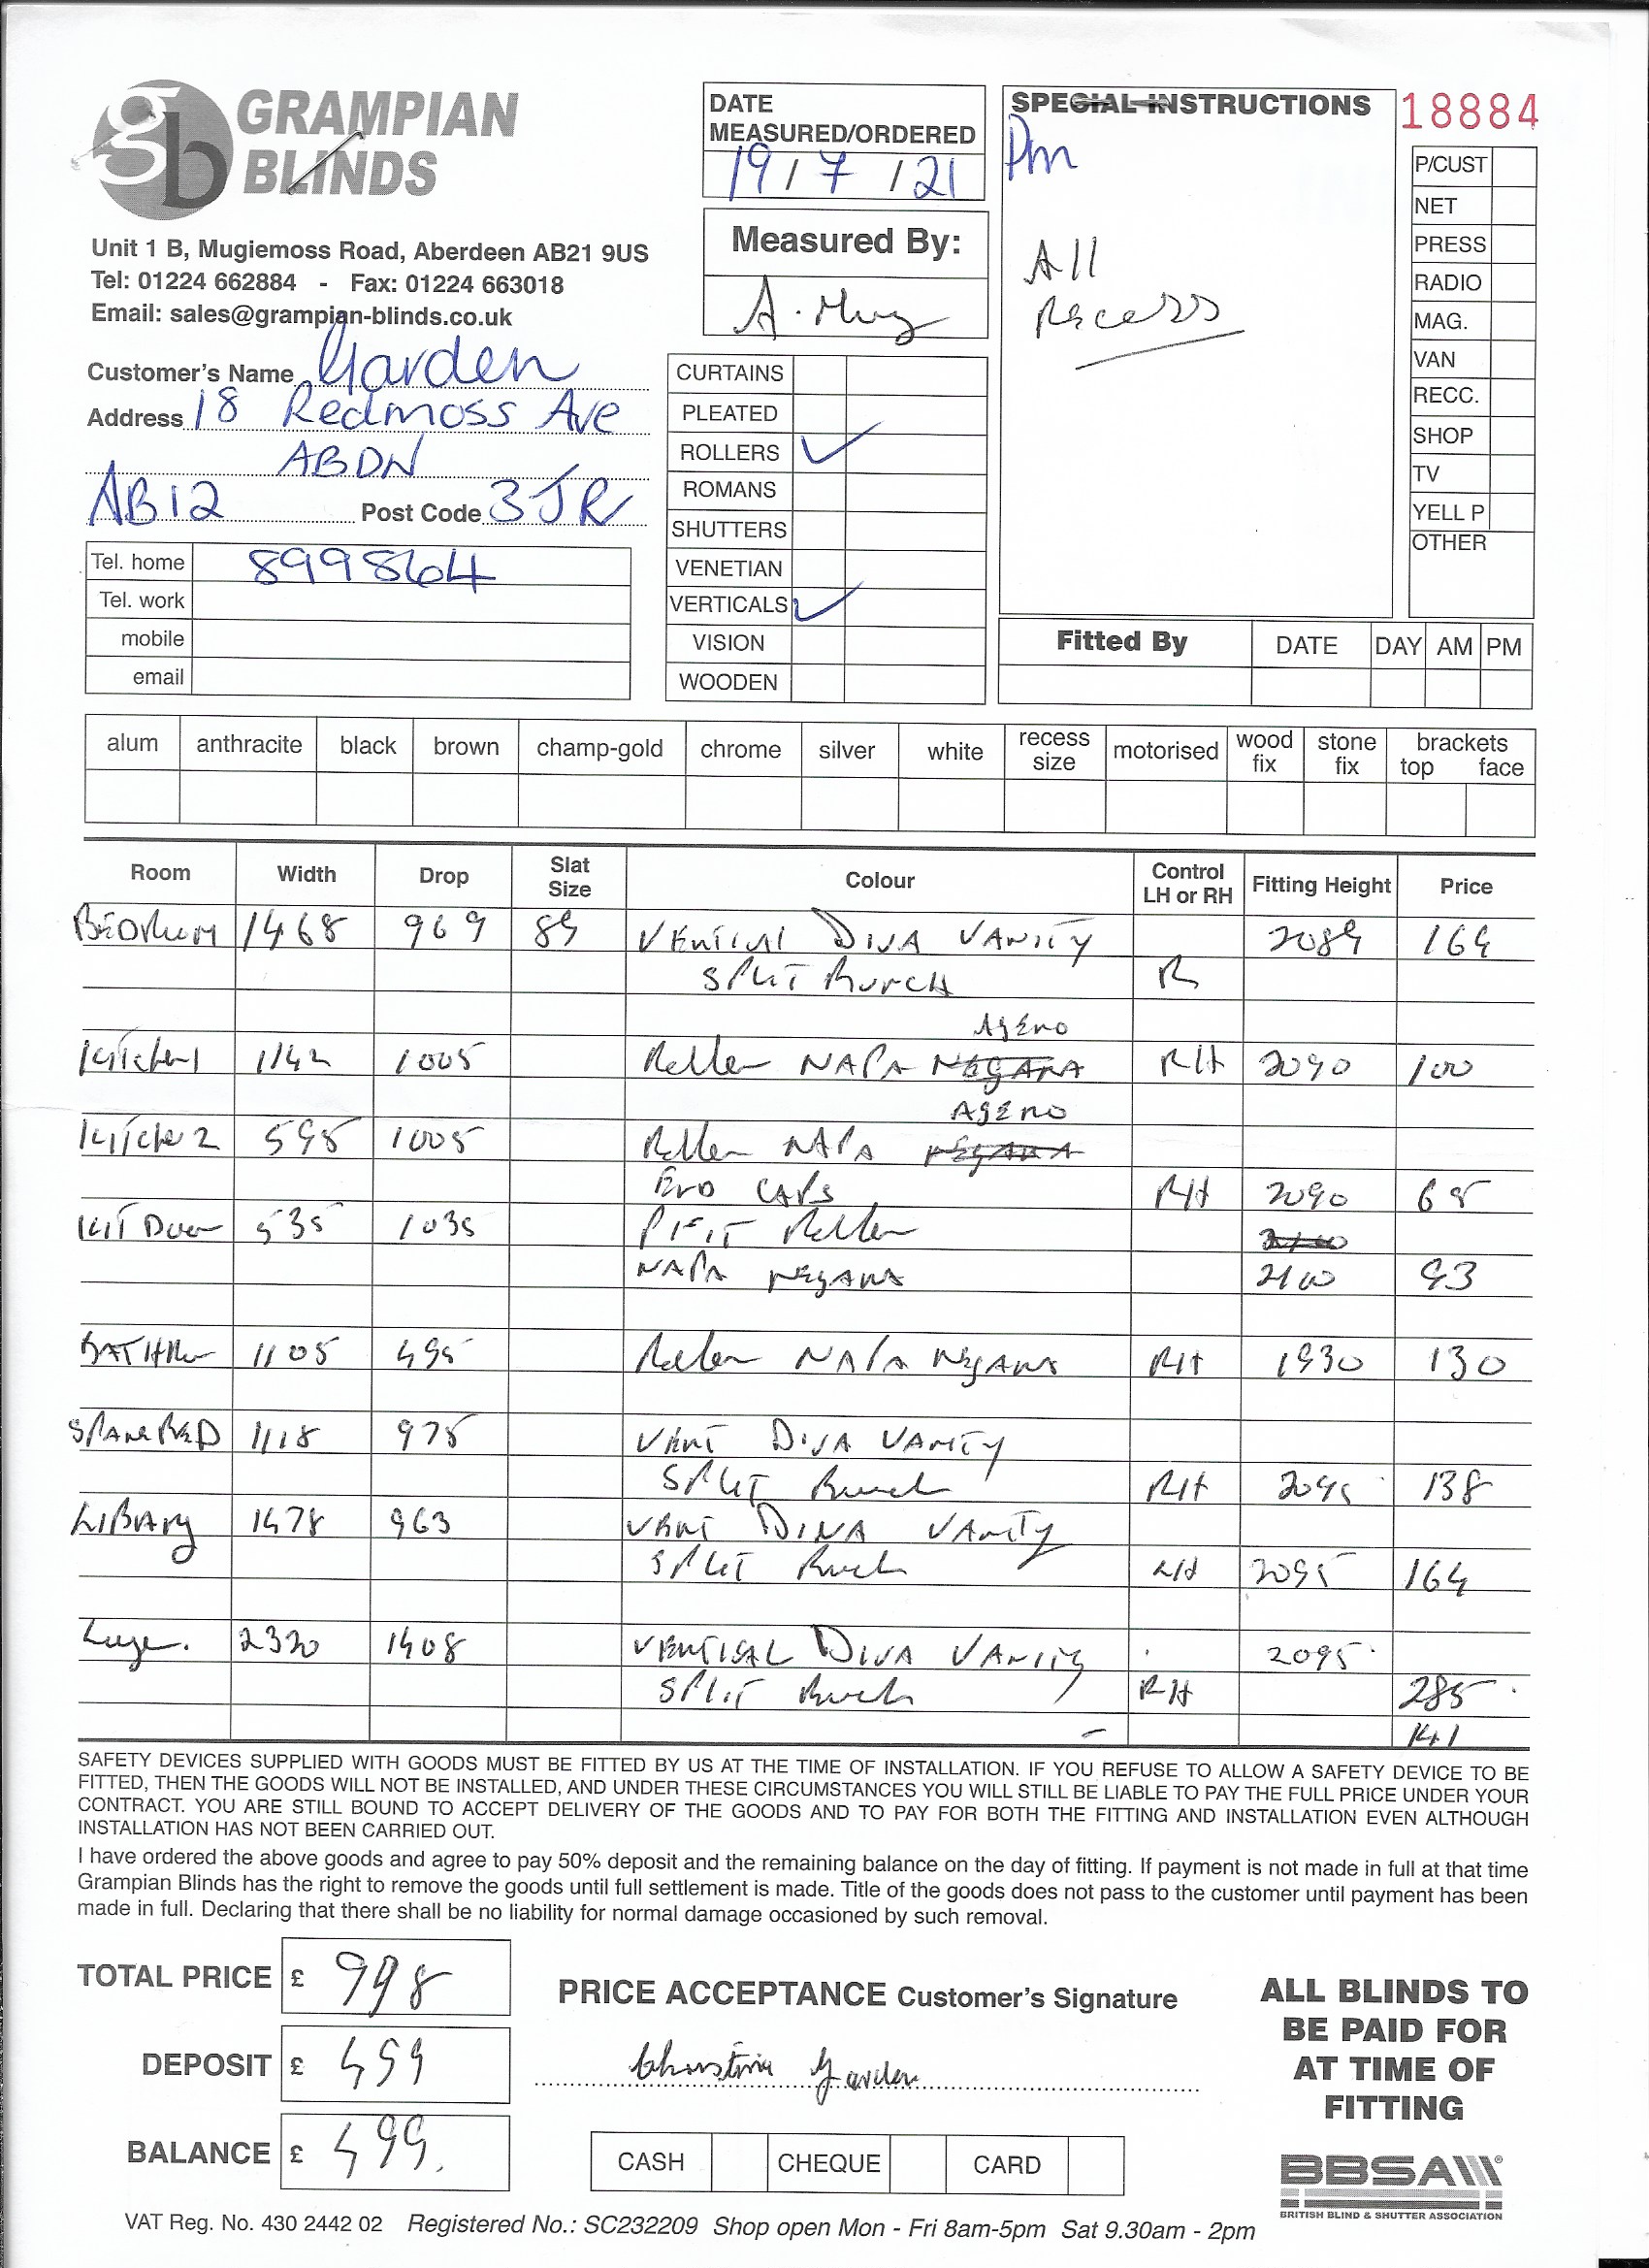 gb GRAMPIAN BLINDS
Unit 1 B, Mugiemoss Road, Aberdeen AB21 9US
Tel: 01224 662884 - Fax: 01224 663018
Email: sales@grampian-blinds.co.uk
Customer's Name Garden
Address 18 Redmoss Ave
ABDN
AB12 Post Code 3JR
Tel. home 899864
Tel. work
mobile
email
DATE
MEASURED/ORDERED
19/7/21
Measured By:
A.
CURTAINS
PLEATED
ROLLERS ✓
ROMANS
SHUTTERS
VENETIAN
VERTICALS ✓
VISION
WOODEN
SPECIAL INSTRUCTIONS
Pm
All
Recess
18884
P/CUST
NET
PRESS
RADIO
MAG.
VAN
RECC.
SHOP
TV
YELL P
OTHER
Fitted By DATE DAY AM PM
alum anthracite black brown champ-gold chrome silver white recess size motorised wood fix stone fix brackets top face
Room Width Drop Slat Size Colour Control LH or RH Fitting Height Price
BEDRoom 1468 969 89 VERTICAL DIVA VANITY 2089 164
SPLIT BUNCH R
AGENO
Kitchen 1 1142 1005 Roller NAPA NEGARA RH 2090 100
AGENO
Kitchen 2 595 1005 Roller NAPA NEGARA
END CAPS RH 2090 65
KIT Door 535 1035 PFIT Roller 2100
NAPA NEGARA 2100 93
BATHRm 1105 495 Roller NAPA NEGARA RH 1930 130
SPARE BED 1118 975 VERT DIVA VANITY
SPLIT Bunch RH 2095 138
LIBRARY 1478 963 VERT DIVA VANITY
SPLIT Bunch LH 2095 164
Lounge. 2320 1408 VERTICAL DIVA VANITY 2095
SPLIT Bunch RH 285
141
SAFETY DEVICES SUPPLIED WITH GOODS MUST BE FITTED BY US AT THE TIME OF INSTALLATION. IF YOU REFUSE TO ALLOW A SAFETY DEVICE TO BE
FITTED, THEN THE GOODS WILL NOT BE INSTALLED, AND UNDER THESE CIRCUMSTANCES YOU WILL STILL BE LIABLE TO PAY THE FULL PRICE UNDER YOUR
CONTRACT. YOU ARE STILL BOUND TO ACCEPT DELIVERY OF THE GOODS AND TO PAY FOR BOTH THE FITTING AND INSTALLATION EVEN ALTHOUGH
INSTALLATION HAS NOT BEEN CARRIED OUT.
I have ordered the above goods and agree to pay 50% deposit and the remaining balance on the day of fitting. If payment is not made in full at that time
Grampian Blinds has the right to remove the goods until full settlement is made. Title of the goods does not pass to the customer until payment has been
made in full. Declaring that there shall be no liability for normal damage occasioned by such removal.
TOTAL PRICE £ 998
DEPOSIT £ 499
BALANCE £ 499.
PRICE ACCEPTANCE Customer's Signature
Christina Garden
CASH CHEQUE CARD
ALL BLINDS TO
BE PAID FOR
AT TIME OF
FITTING
BBSA
BRITISH BLIND & SHUTTER ASSOCIATION
VAT Reg. No. 430 2442 02 Registered No.: SC232209 Shop open Mon - Fri 8am-5pm Sat 9.30am - 2pm